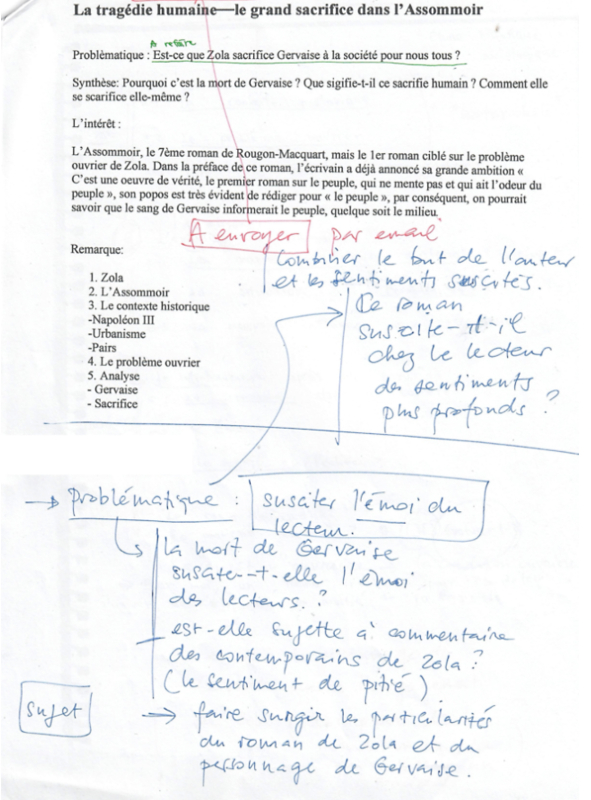 La tragédie humaine—le grand sacrifice dans l'Assommoir
A refaire
Problèmatique : Est-ce que Zola sacrifice Gervaise à la société pour nous tous ?
Synthèse: Pourquoi c'est la mort de Gervaise ? Que sigifie-t-il ce sacrifie humain ? Comment elle
se scarifice elle-même ?
L'intérêt :
L'Assommoir, le 7ème roman de Rougon-Macquart, mais le 1er roman ciblé sur le problème
ouvrier de Zola. Dans la préface de ce roman, l'écrivain a déjà annoncé sa grande ambition «
C'est une oeuvre de vérité, le premier roman sur le peuple, qui ne mente pas et qui ait l'odeur du
peuple », son popos est très évident de rédiger pour « le peuple », par conséquent, on pourrait
savoir que le sang de Gervaise informerait le peuple, quelque soit le milieu.
A envoyer par email
Combiner le but de l'auteur
et les sentiments suscités.
Remarque:
1. Zola
2. L'Assommoir
3. Le contexte historique
-Napoléon III
-Urbanisme
-Pairs
4. Le problème ouvrier
5. Analyse
- Gervaise
- Sacrifice
Ce roman
suscite-t-il
chez le lecteur
des sentiments
plus profonds ?
→ Problématique : susciter l'émoi du
lecteur.
la mort de Gervaise
susciter-t-elle l'émoi
des lecteurs.?
est-elle sujette à commentaire
des contemporains de Zola ?
(le sentiment de pitié)
Sujet → faire surgir les particularités
du roman de Zola et du
personnage de Gervaise.